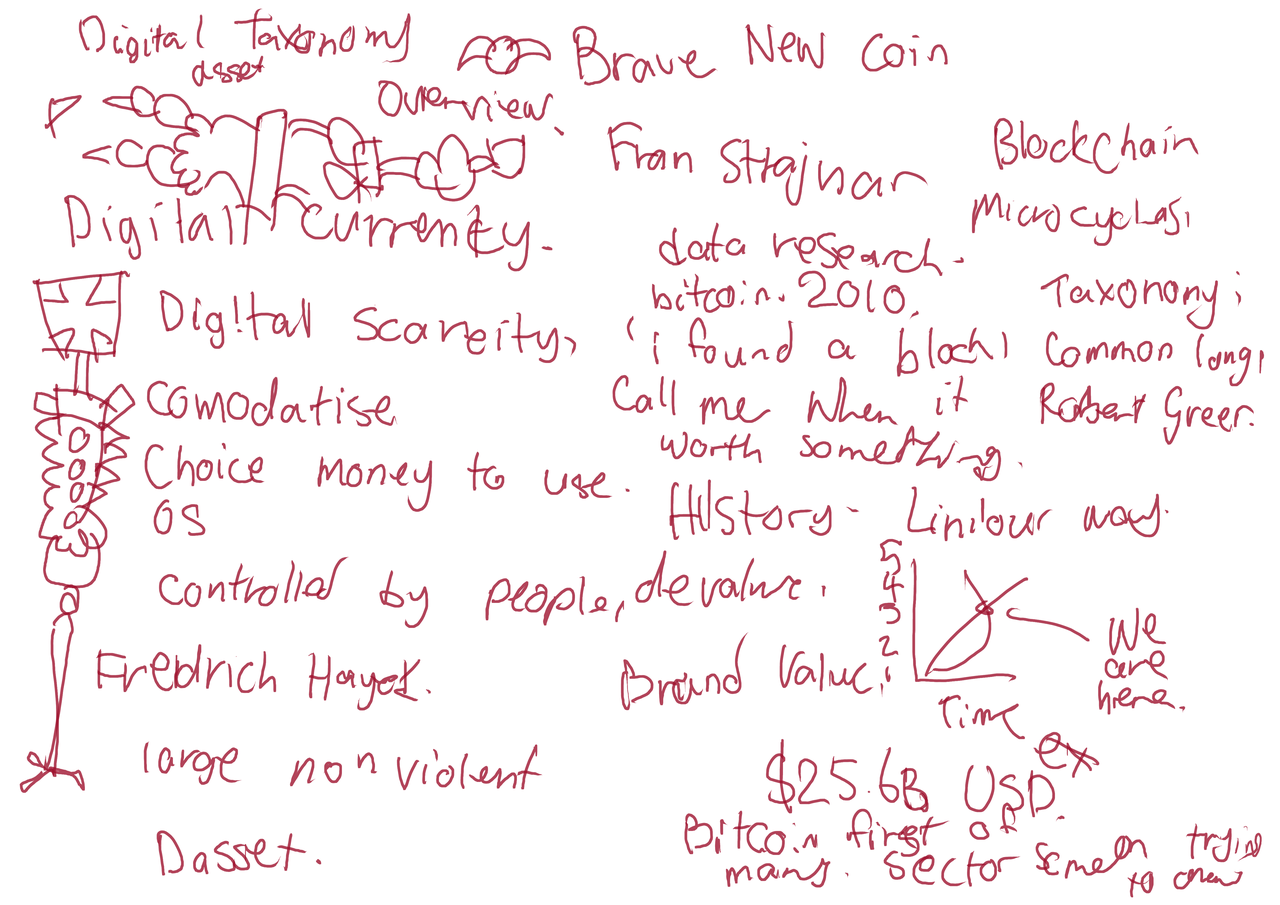 Digital Taxonomy
asset
Overview.
Digital currency.
Digital scarcity,
comodatise
Choice money to use.
OS
controlled by people, devalue.
Fredrich Hayek.
large non violent
Dasset.
Brave New Coin
Fran Strajnar
data research.
bitcoin. 2010.
'i found a block,
Call me when it
worth something.
History - Linilour way.
5
4
3
2
1
Time
We
are
here.
Brand Value.
$25.6B USD
ex
Bitcoin first of
many. sector trying
to
Blockchain
Microcycles,
Taxonomy;
Common lang,
Robert Greer.